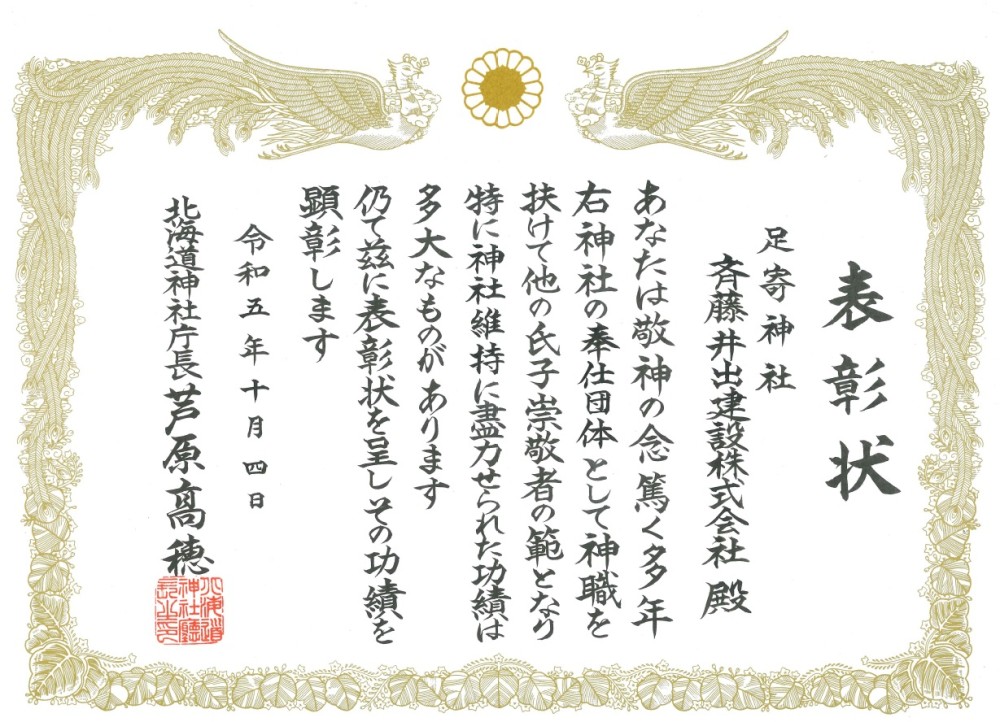 表彰状
足寄神社
斉藤井出建設株式会社 殿
あなたは敬神の念篤く多年
右神社の奉仕団体として神職を
扶けて他の氏子崇敬者の範となり
特に神社維持に盡力せられた功績は
多大なものがあります
仍て茲に表彰状を呈しその功績を
顕彰します
令和五年十月四日
北海道神社庁長 芦原高穂
北海道
神社廳
長之印